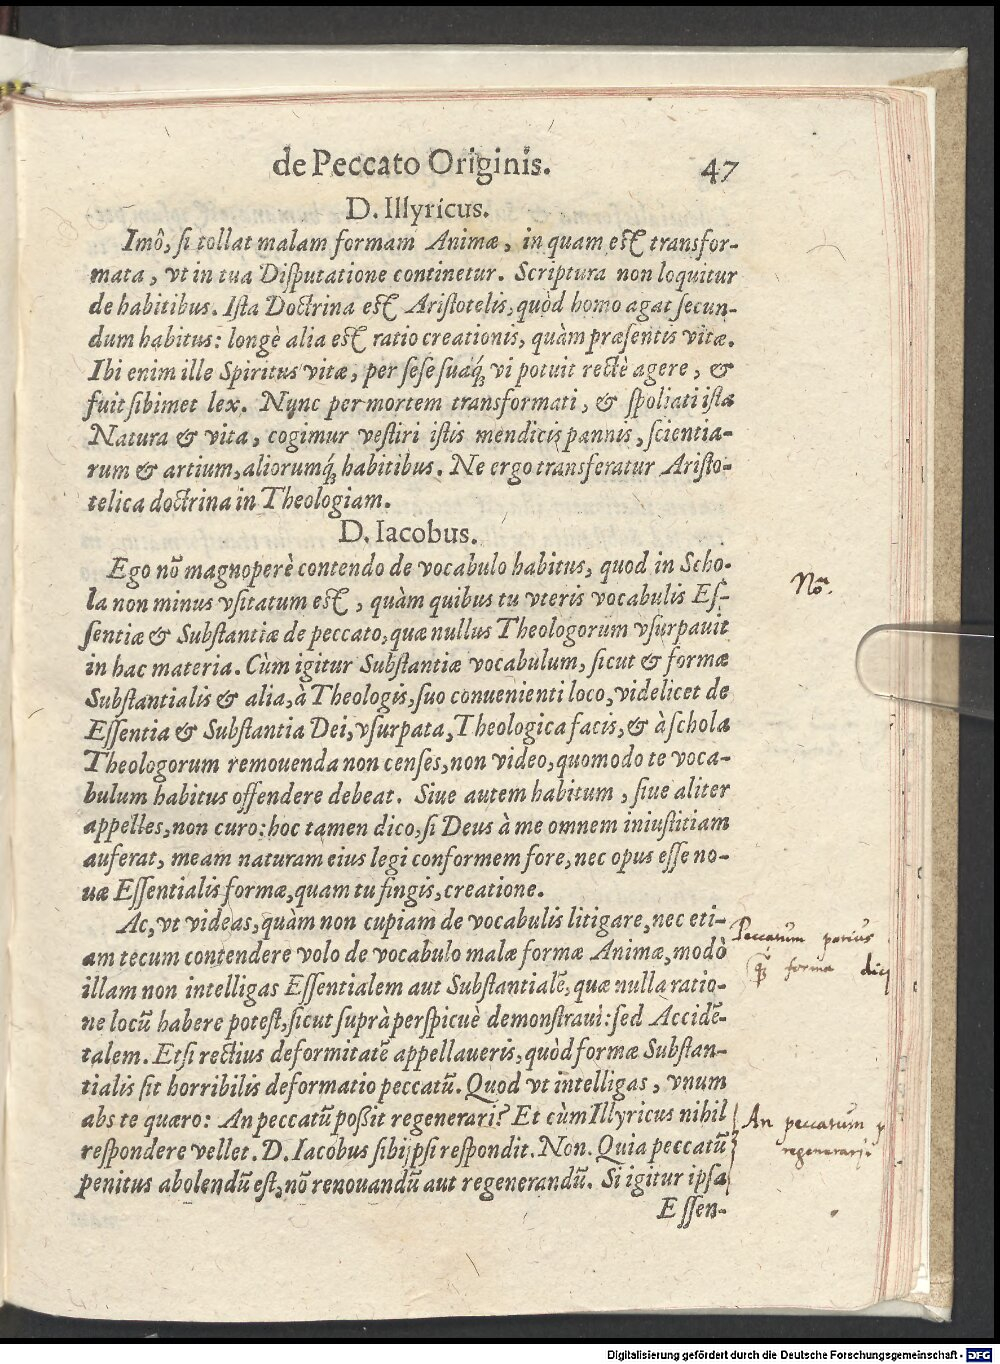 de Peccato Originis. 47
D. Illyricus.
Imô, si tollat malam formam Animæ, in quam est transfor-
mata, vt in tua Disputatione continetur. Scriptura non loquitur
de habitibus. Ista Doctrina est Aristotelis, quòd homo agat secun-
dum habitus: longè alia est ratio creationis, quàm præsentis vitæ.
Ibi enim ille Spiritus vitæ, per sese suaq́; vi potuit rectè agere, &
fuit sibimet lex. Nunc per mortem transformati, & spoliati ista
Natura & vita, cogimur vestiri istis mendicis pannis, scientia-
rum & artium, aliorumq́; habitibus. Ne ergo transferatur Aristo-
telica doctrina in Theologiam.
D. Iacobus.
Ego nō magnoperè contendo de vocabulo habitus, quod in Scho-
la non minus vsitatum est, quàm quibus tu vteris vocabulis Es-
sentiæ & Substantiæ de peccato, quæ nullus Theologorum vsurpauit
in hac materia. Cùm igitur Substantiæ vocabulum, sicut & formæ
Substantialis & alia, à Theologis, suo conuenienti loco, videlicet de
Essentia & Substantia Dei, vsurpata, Theologica facis, & à schola
Theologorum remouenda non censes, non video, quomodo te voca-
bulum habitus offendere debeat. Siue autem habitum, siue aliter
appelles, non curo: hoc tamen dico, si Deus à me omnem iniustitiam
auferat, meam naturam eius legi conformem fore, nec opus esse no-
uæ Essentialis formæ, quam tu fingis, creatione.
Ac, vt videas, quàm non cupiam de vocabulis litigare, nec eti-
am tecum contendere volo de vocabulo malæ formæ Animæ, modò
illam non intelligas Essentialem aut Substantialē, quæ nulla ratio-
ne locū habere potest, sicut suprà perspicuè demonstraui: sed Accidē-
talem. Etsi rectius deformitatē appellaueris, quòd formæ Substan-
tialis sit horribilis deformatio peccatū. Quod vt intelligas, vnum
abs te quæro: An peccatū poßit regenerari? Et cùm Illyricus nihil
respondere vellet. D. Iacobus sibi ipsi respondit. Non. Quia peccatū
penitus abolendū est, nō renouandū aut regenerandū. Si igitur ipsa
Essen-
Nō.
Peccatum potius
forma
An peccatum
regenerari
Digitalisierung gefördert durch die Deutsche Forschungsgemeinschaft - DFG